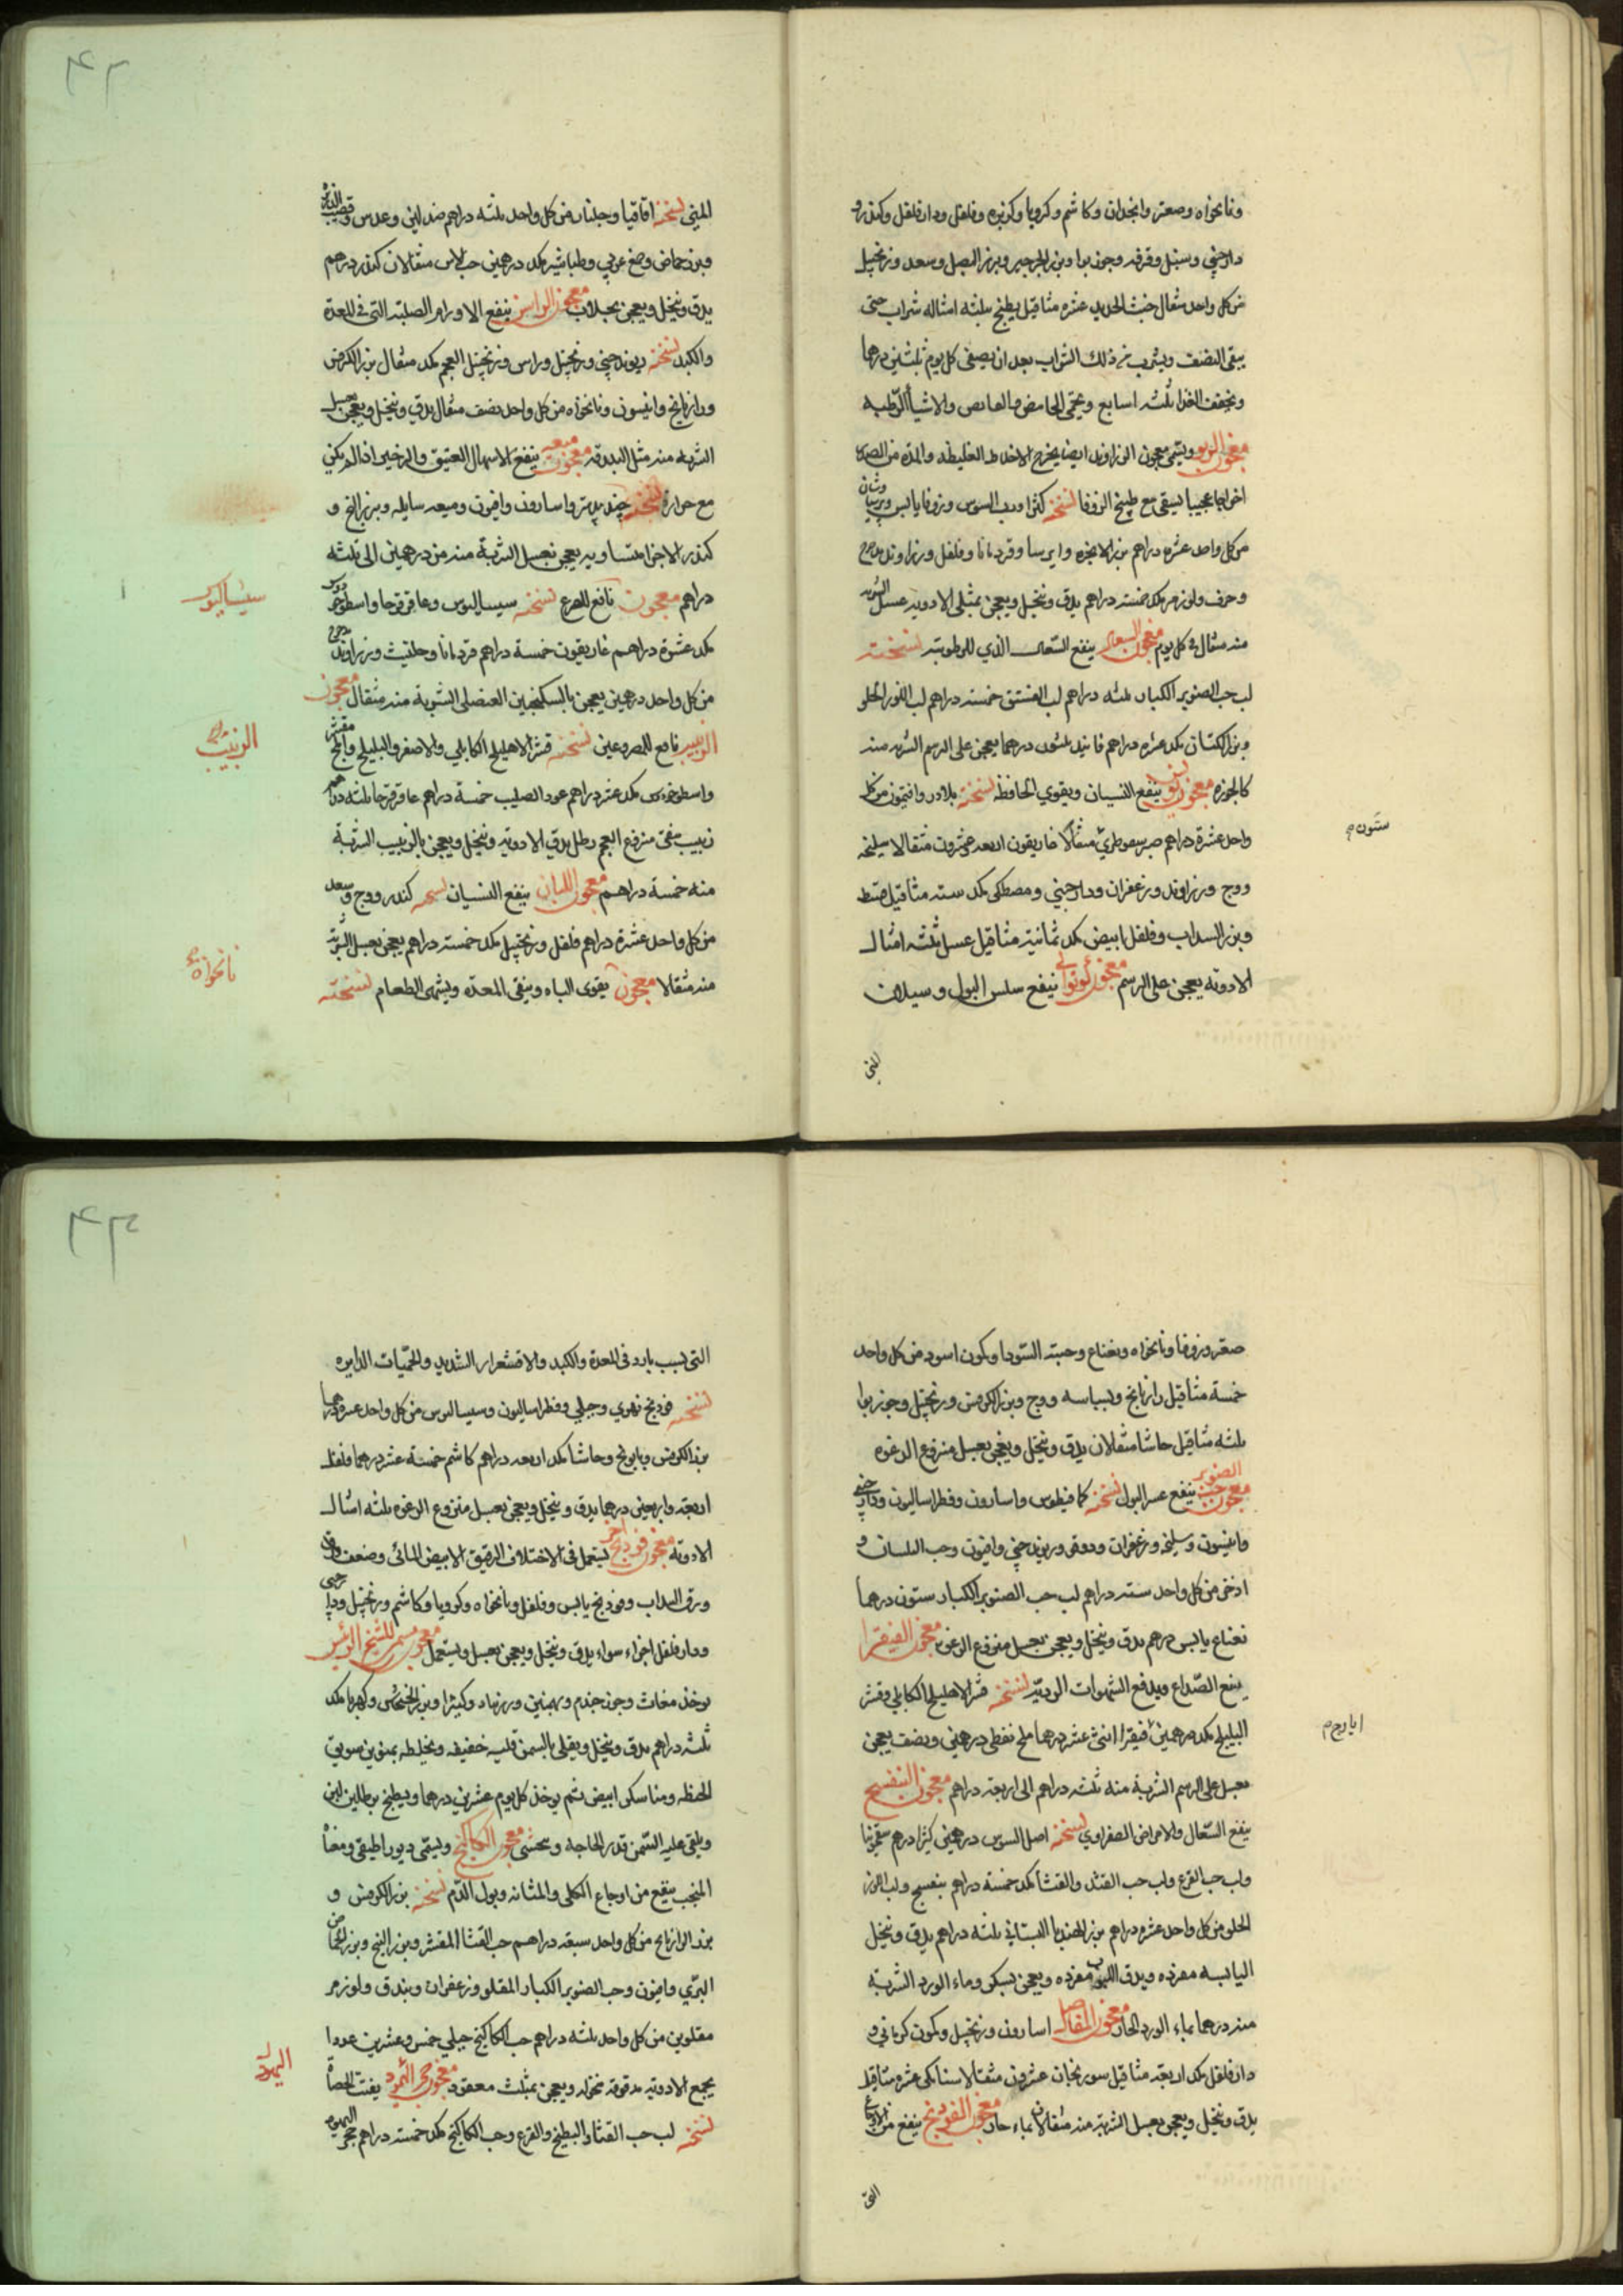 ونانخواه وصعتر وانجدان وكاشم وكرويا وكزبره وفلفل ودارفلفل وكندر و
دارچيني وسنبل وقرفه وجوز بوا وبزر الجرجير وبزر البصل وسعد وزنجبيل
من كل واحد مثقال خبث الحديد عشره مثاقيل يطبخ بثلثه امثاله شراب حتى
يبقى النصف ويشرب من ذلك الشراب بعد ان يصفى كل يوم ثلثين درهما
ويخفف الغذا ثلثه اسابيع ويحمى الحامض والمالح والاشيا الرطبه
معجون الربو ويسمى معجون الزراوند ايضا يخرج الاخلاط الغليظه والمده من الصدر
اخراجا عجيبا يسقى مع طبيخ الزوفا نسخته كثيرا ورب السوس وزوفا يابس وبرسياوشان
من كل واحد عشره دراهم بزر الانجره وايرسا وقردمانا وفلفل وزراوند مدحرج
وحرف ولوز مر مكد خمسه دراهم يدق وينخل ويعجن بمثلي الادويه عسل الشربه
منه مثقال في كل يوم معجون السعال ينفع السعال الذي للرطوبته نسخته
لب حب الصنوبر الكبار ثلثه دراهم لب الفستق خمسه دراهم لب اللوز الحلو
وبزر الكتان مكد عشره دراهم فانيد ثلثون درهما يعجن على الرسم الشربه منه
كالجوزه معجون ينفع النسيان ويقوي الحافظه نسخته بلادر وافتيمون من كل
واحد عشرة دراهم صبر سقوطري مثقالا غاريقون اربعه عشرون مثقالا سليخه
ستون م
ووج وزراوند وزعفران ودارچيني ومصطكى مكد سته مثاقيل قسط
وبزر السداب وفلفل ابيض مكد ثمانية مثاقيل عسل ثلثه امثال
الادويه يعجن على الرسم معجون ينفع سلس البول وسيلان
المني
۴۲
المني نسخته اقاقيا وجلنار من كل واحد ثلثه دراهم صندلين وعدس وقصب الذريره
وبزر حماض وصمغ عربي وطباشير مكد درهمين حب الاس مثقالان كندر درهم
يدق وينخل ويعجن بجلاب معجون الراسن ينفع الاورام الصلبته التى فى المعدة
والكبد نسخته ريوند چيني وزنجبيل وراس وزنجبيل العجم مكد مثقال بزر الكرفس
ورازيانج وانيسون ونانخواه من كل واحد نصف مثقال يدق وينخل ويعجن بعسل
الشربه منه مثل البندقه معجون ميعه ينفع الاسهال العتيق والزحير اذا لم يكن
مع حرارة نسخته جندبيدستر واسارون وافيون وميعه سايله وبزر البنج و
كندر الاجزا متساويه يعجن بعسل الشربة منه من درهمين الى ثلثه
دراهم معجون نافع للصرع نسخته سيساليوس وعاقرقرحا واسطوخودوس
سيساليوس
مكد عشرة دراهم غاريقون خمسة دراهم قردمانا وحلتيث وزراوند مدحرج
من كل واحد درهمين يعجن بالسكنجبين العنصلى الشربة منه مثقال معجون
الزبيب نافع للمصروعين نسخته قشر الاهليلج الكابلي والاصفر والبليلج واملج مقشر
الزبيب
واسطوخودوس مكد عشر دراهم عود الصليب خمسة دراهم عاقرقرحا ثلثه دراهم
زبيب منقى منزوع العجم رطل يدق الادويه وينخل ويعجن بالزبيب الشربة
منه خمسة دراهم معجون اللبان ينفع النسيان نسخته كندر ووج وسعد
من كل واحد عشرة دراهم فلفل وزنجبيل مكد خمسه دراهم يعجن بعسل الشربة
نانخواه
منه مثقالا معجون يقوى الباه وينقى المعده ويشهى الطعام نسخته
صعتر وزوفا ونانخواه ونعناع وحبته السودا وكمون اسود من كل واحد
خمسة مثاقيل رازيانج وبسباسه ووج وبزر الكرفس وزنجبيل وجوز بوا
ثلثه مثاقيل حاشا مثقالان يدق وينخل ويعجن بعسل منزوع الرغوه
معجون حب الصنوبر ينفع عسر البول نسخته كمافيطوس واسارون وفطراساليون ودارچيني
وانيسون وسليخه وزعفران ودوقو وريوند چيني وافيون وحب البلسان و
اذخر من كل واحد سته دراهم لب حب الصنوبر الكبار ستون درهما
نعناع يابس درهم يدق وينخل ويعجن بعسل منزوع الرغوه معجون الفيقرا
ينفع الصداع ويدفع الشهوات الرديه نسخته قشر الاهليلج الكابلي وقشر
البليلج مكد درهمين فيقرا اثنى عشر درهما ملح نفطي درهمين ونصف يعجن
ايارج م
بعسل على الرسم الشربة منه ثلثه دراهم الى اربعه دراهم معجون البنفسج
ينفع السعال والامراض الصفراوي نسخته اصل السوس درهمين كثيرا درهم سقمونيا
ولب حب القرع ولب حب القثد والقثا مكد خمسة دراهم بنفسج ولب اللوز
الحلو من كل واحد عشره دراهم بزر الهندبا البستاني ثلثه دراهم يدق وينخل
اليابسه مفرده ويدق اللبوب مفرده ويعجن بسكر وماء الورد الشربة
منه درهما بماء الورد الحار معجون المفاصل اسارون وزنجبيل وكمون كرماني و
دارفلفل مكد اربعه مثاقيل سورنجان عشرون مثقالا سنا مكى عشره مثاقيل
يدق وينخل ويعجن بعسل الشربة منه مثقالان بماء حار معجون الفودنج ينفع من الاوجاع
التى
۴۳
التى بسبب بارد فى المعدة والكبد والاقشعرار الشديد والحميات الدايره
نسخته فودنج نهري وجبلي وفطراساليون وسيساليوس من كل واحد عشره درهما
بزر الكرفس وبابونج وحاشا مكد اربعه دراهم كاشم خمسة عشر درهما فلفل
اربعه واربعين درهما يدق وينخل ويعجن بعسل منزوع الرغوه ثلثه امثال
الادويه معجون فودنج اخر يستعمل فى الاختلاف الرقيق الابيض المائى وضعف
ورق السداب وفودنج يابس وفلفل ونانخواه وكرويا وكاشم وزنجبيل ودارچيني
ودارفلفل اجزاء سواء يدق وينخل ويعجن بعسل ويستعمل معجون مسمن للشيخ الرئيس
يوخذ مغاث وجوز جندم وبهمنين وزرنباد وكثيرا وبزر الخشخاش وكهربا مكد
ثلثه دراهم يدق وينخل ويقلى بالسمن قليه خفيفه ويخلط بمنوين سويق
الحنطه ومنا سكر ابيض ثم يوخذ كل يوم عشرين درهما ويطبخ برطلين لبن
ويلقى عليه السمن قدر الحاجه ويحتسى معجون الكاكنج ويسمى ديوراطيقي ومغا
المنجب ينفع من اوجاع الكلى والمثانه وبول الدم نسخته بزر الكرفس و
بزر الرازيانج من كل واحد سبعه دراهم حب القثا المقشر وبزر البنج وبزر الحماض
البري وافيون وحب الصنوبر الكبار المقلو وزعفران وبندق ولوز مر
مقلوين من كل واحد ثلثه دراهم حب الكاكنج جبلي خمس وعشرين عددا
يجمع الادويه مدقوقه منخوله ويعجن بمثلث معقود معجون حجر اليهود يفتت الحصاة
اليهود
نسخته لب حب القثا والبطيخ والقرع وحب الكاكنج مكد خمسه دراهم حجر اليهود